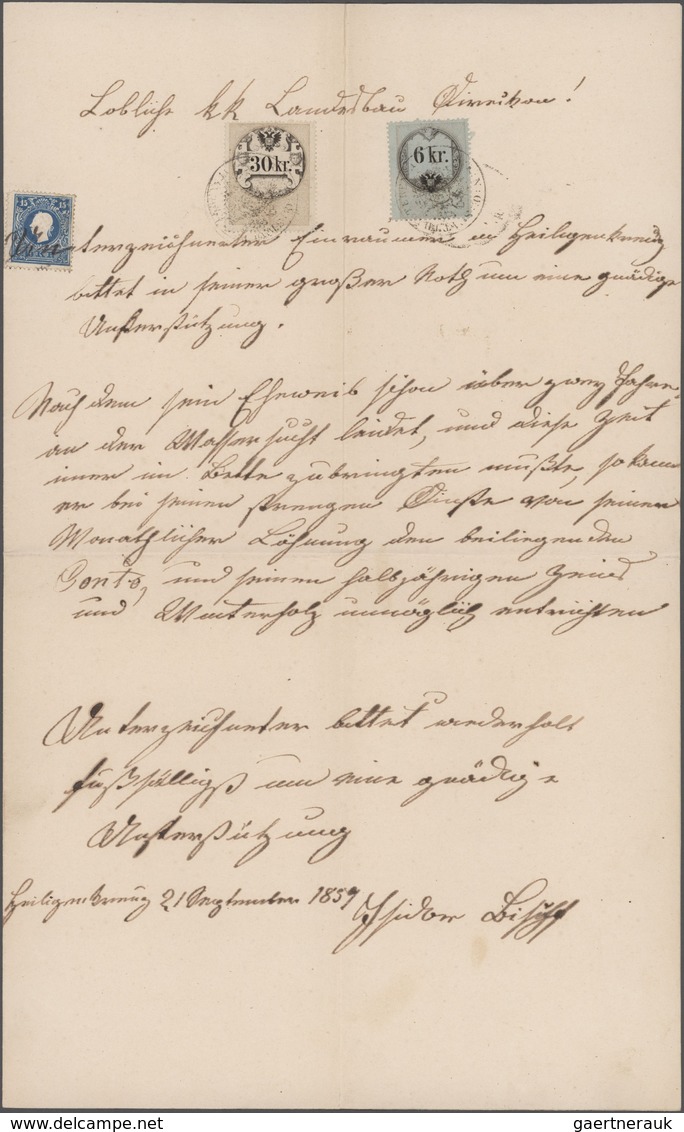 Lobliche kk Landesbau Direckzon!
30 kr.
6 kr.
15
Unterzeichneter Einraumer in Heiligenkreuz
bittet in seiner großer Noth um eine gnädige
Unterstützung.
Nach dem sein Eheweib schon über zwey Jahre
an der Wassersucht leidet, und diese Zeit
imer im Bette zubringten mußte, so kann
er bei seinen strengen Dinste von seiner
Monathlicher Löhnung den beiliegenden
Conto, und seinen halbjährigen Zeins
und Winterholz unmöglich entrichten
Unterzeichneter bittet wiederholt
fußfälligst um eine gnädige
Unterstützung
Heiligenkreuz 21 September 1859
Isidor Bischof
DELCAMPE.NET
gaertnerauk